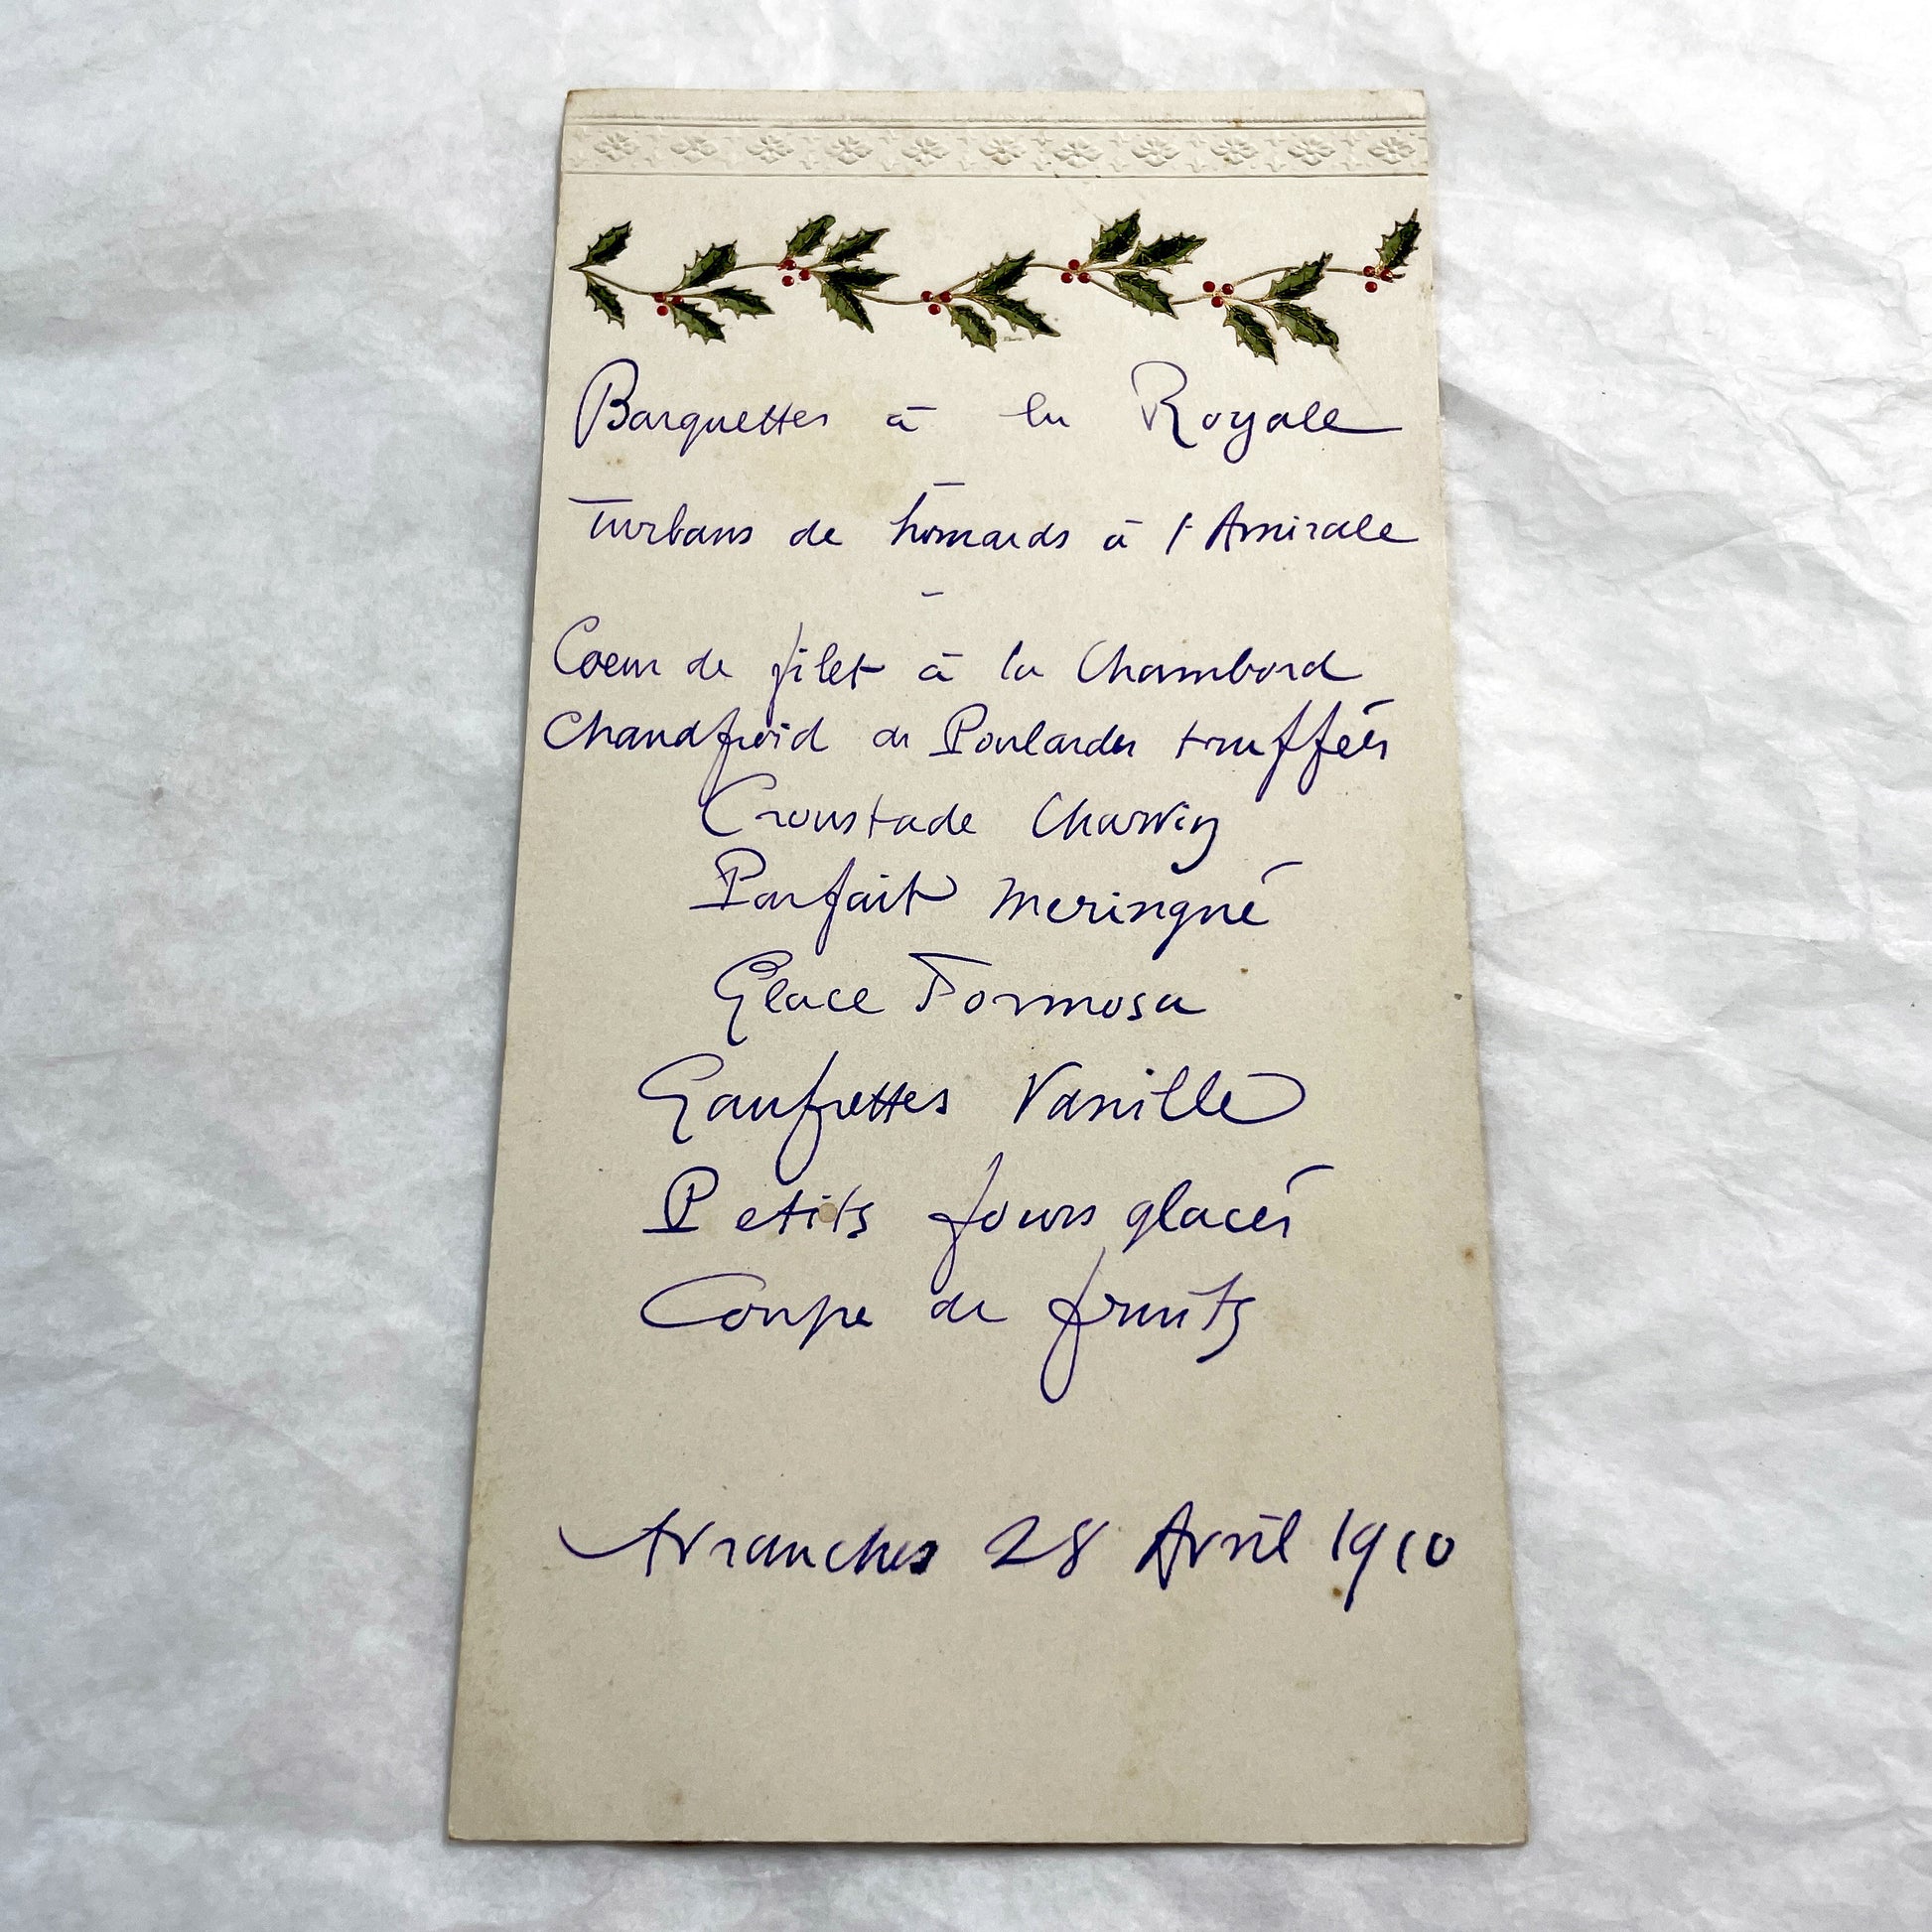 Barquettes à la Royale
Turbans de homards à l'Amirale
Coeur de filet à la Chambord
Chaudfroid de Poulardes truffées
Croustade
Parfait Meringué
Glace Formosa
Gaufrettes Vanille
Petits fours glacés
Coupe de fruits
Avranches 28 Avril 1910